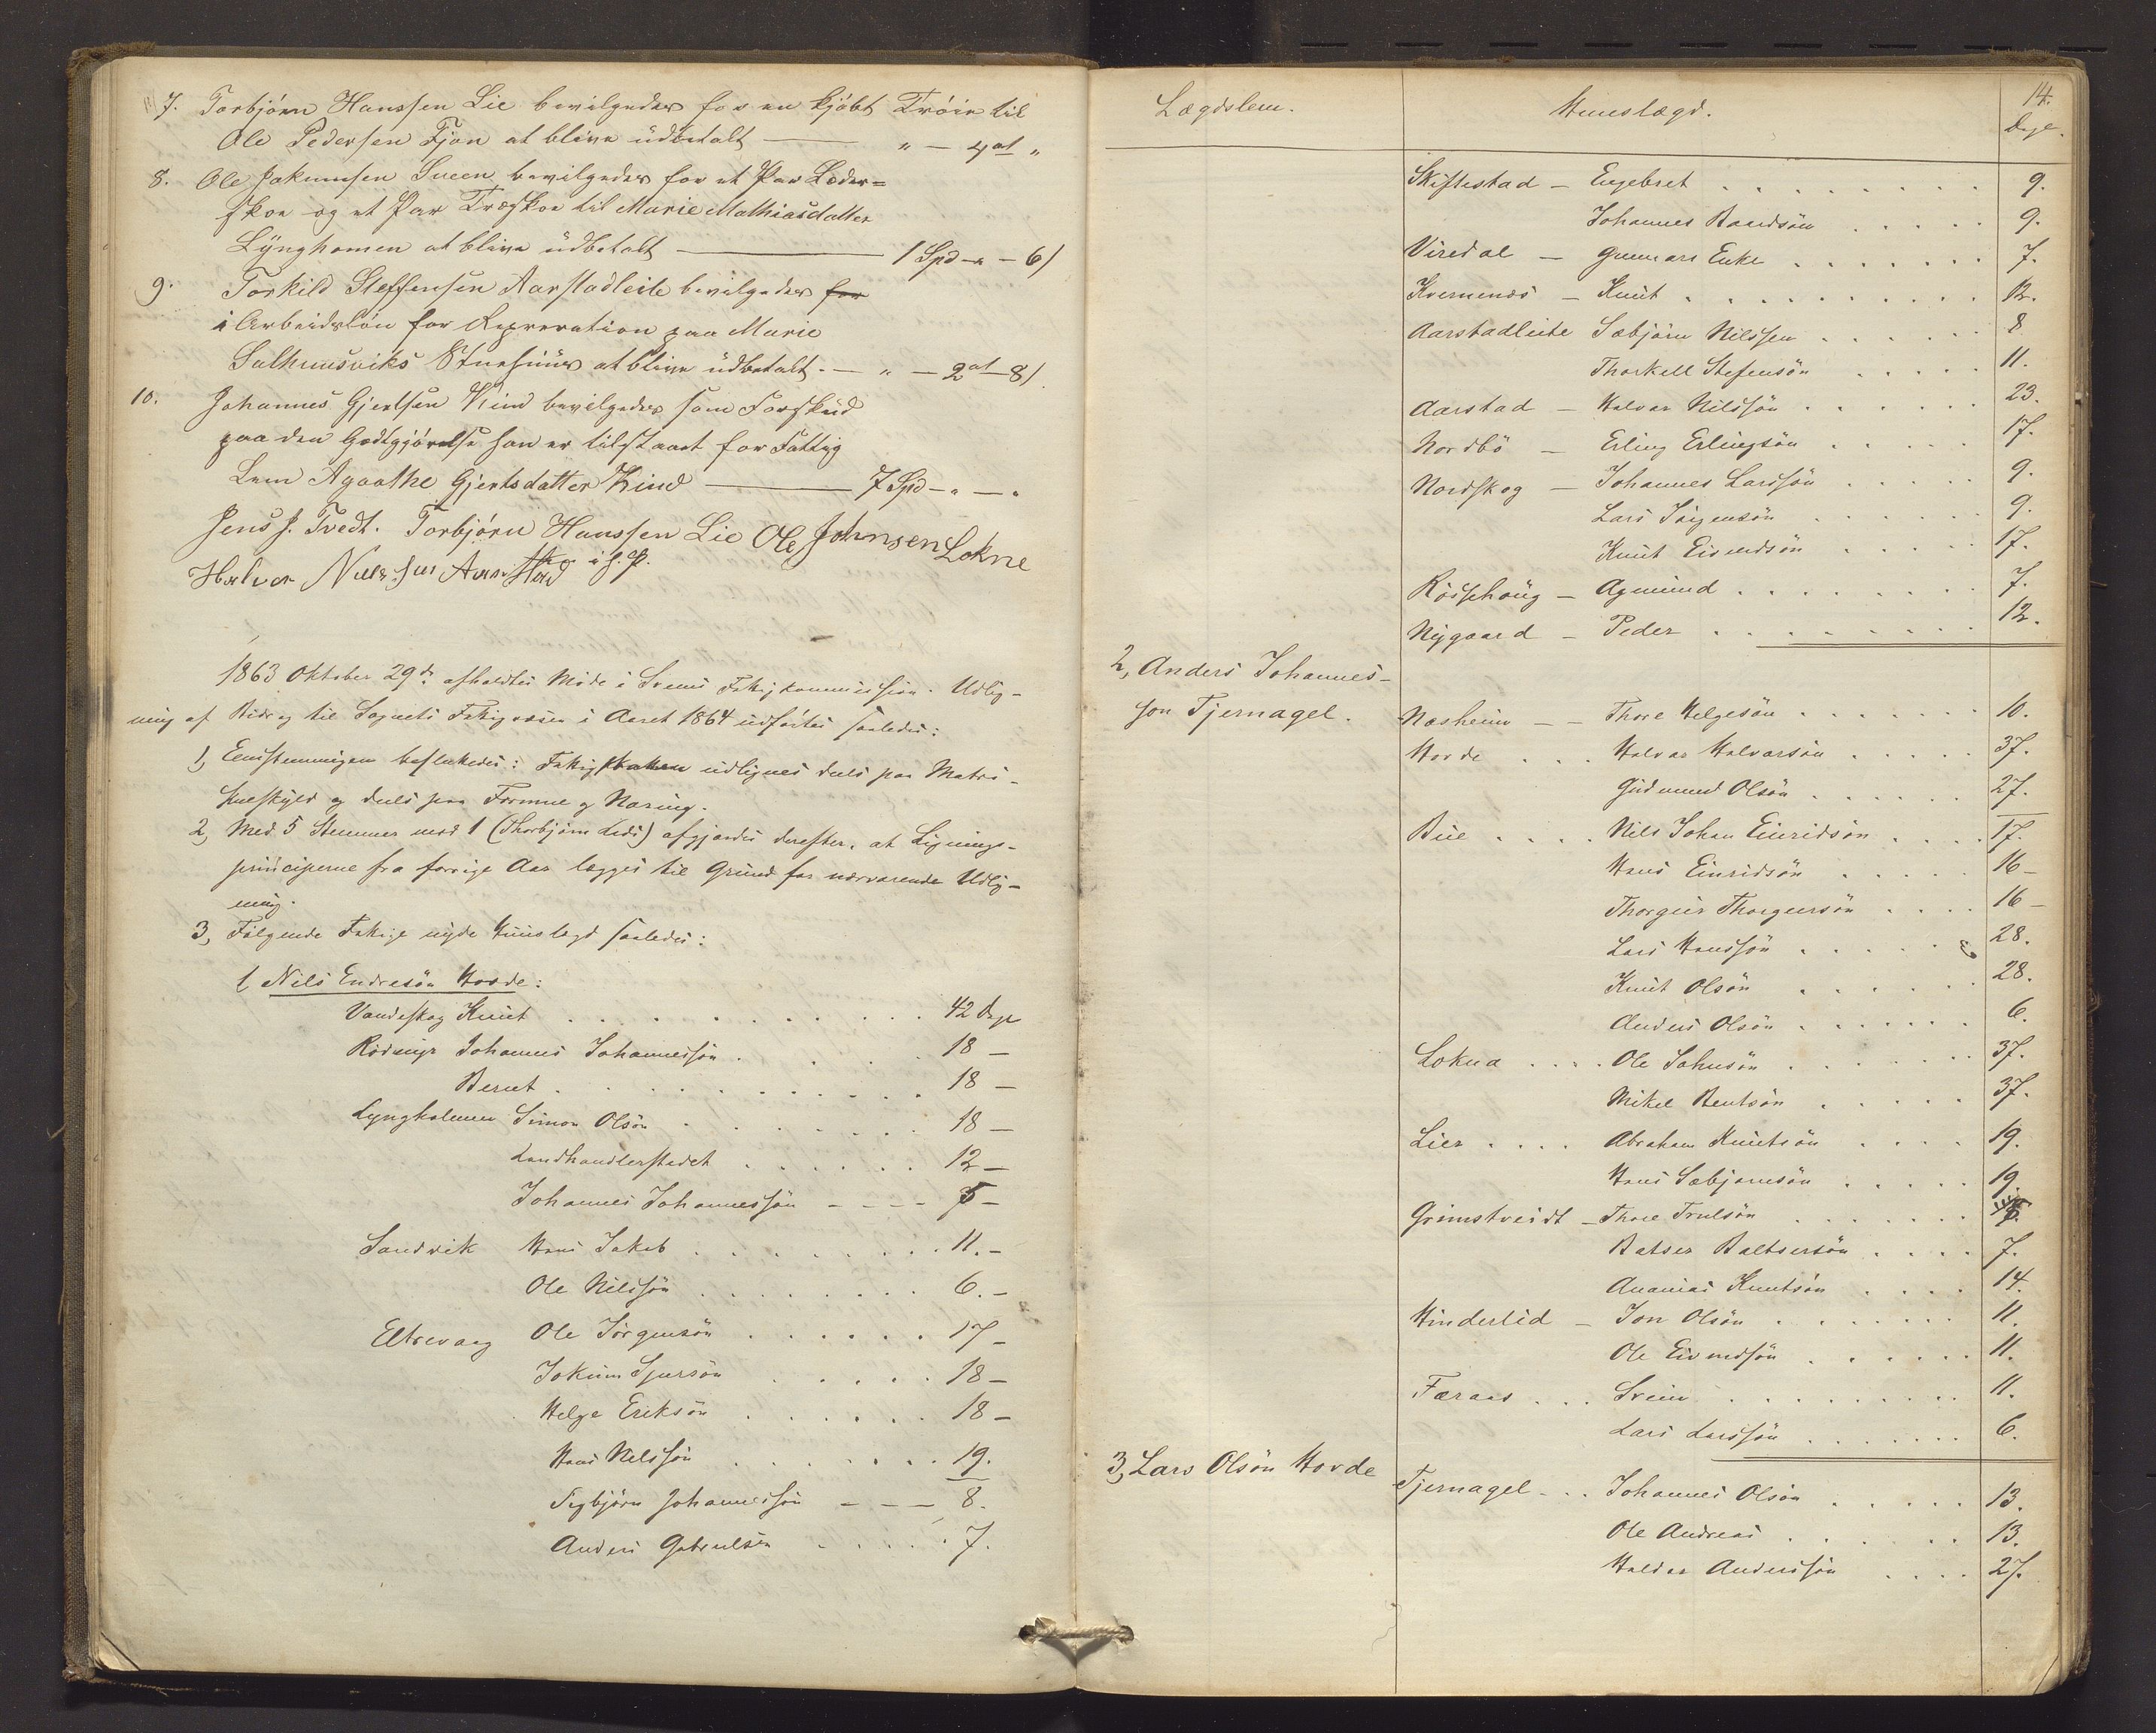 7. Torbjörn Hanssen Lie bevilgedes for en kjöbt Tröie til
Ole Pedersen Fjon at blive üdbetalt — " — 4 ort "
8. Ole Jokumsen Sveen bevilgedes for et Par Læder=
skoe og et Par Træskoe til Marie Mathiasdatter
Lÿngholmen at blive üdbetalt — 1 Spd - " - 6 s
9. Torkild Steffensen Aarstadleite bevilgedes for
i Arbeidslön for Repreration paa Marie
Valhumsviks Stuehüus at blive üdbetalt. — " — 2 ort 8 s.
10. Johannes Gjertsen Kind bevilgedes som Forskud
paa den Godtgjörelse han er tilstaaet for Fattig
Lem Agaathe Gjertsdatter Kind — 7 Spd - " - "
Jens J. Tvedt. Torbjörn Hanssen Lie Ole Johnsen Lokne
Halvor Nielssen Aarstad i.f.P.
1863 Oktober 29de afholdtes Möde i Sveens Fattigkommission. Udlig-
ning af Bidrag til Sognets Fattigvæsen i Aaret 1864 udförtes saaledes:
1, Eenstemmigen besluttedes: Fattigskatten udlignes deels paa Matri-
kuelskÿld og deels paa Formue og Næring.
2, Med 5 Stemmer mod 1 (Thorbjörn Lids) afgjordes derefter, at Lignings-
principerne fra forrige Aar lægges til Grund for nærværende Udlig-
ning.
3, Fölgende Fattige nÿde Huuslægd saaledes:
1 Nils Endresön Hovde:
Vandskog Knut . . . 42 Dage
Rödmyr Johannes Johannessön . . . 18 —
Bernt . . . 18 —
Lyngholmen Simon Olsön . . . 18 —
Landhandlerstedet . . . 12 —
Johannes Johannessön - - - - 5 —
Sandvik Hans Jakob . . . 11. —
Ole Nilssön . . . 6. —
Eltrevaag Ole Jörgensön . . . 17 —
Jokum Sjursön . . . 18 —
Helge Eriksön . . . 18 —
Hans Nilssön . . . 19.
Sigbjörn Johannessön - - - 8.
Anders Gabrielsen . . . 7.
14.
Lægdslem. Huuslægd. Dage.
Skiftestad — Engebret . . . 9.
Johannes Baardsön . . . 9.
Viredal — Gunnars Enke . . . 7.
Kvernenæs — Knut . . . 12.
Aarstadleite Sæbjörn Nilssen . . . 8
Thorkell Stefensön . . . 11.
Aarstad — Halvor Nilssön . . . 23.
Nordbö — Erling Erlingsön . . . 17.
Nordskog — Johannes Larssön . . . 9.
Lars Jörgensön . . . 9.
Knut Eivindsön . . . 17.
Rösshoug — Agmund . . . 7.
Nÿgaard — Peder . . . 12.
2, Anders Johannes-
son Tjernagel.
Næsheim — Thore Helgesön . . . 10.
Hovde . . . Halvor Halvorsön . . . 37.
Gudmund Olsön . . . 27.
Bue . . . Nils Johan Einridsön . . . 17.
Hans Einridsön . . . 16 —
Thorgeir Thorgeirsön . . . 16 —
Lars Hanssön . . . 28.
Knut Olsön . . . 28.
Anders Olsön . . . 6.
Lokna . . . Ole Johnsön . . . 37.
Mikel Bentsön . . . 37.
Lier . . . Abraham Knutsön . . . 19.
Hans Sæbjörnsön . . . 19.
Grimstveidt — Thore Trulsön . . .
Batser Baltsersön . . . 7.
Ananias Knutsön . . . 14.
Hinderlid — Jon Olsön . . . 11.
Ole Eivindsön . . . 11.
Færaas . . . Svein . . . 11.
Lars Larssön . . . 6.
3, Lars Olsön Hovde
Tjernagel . . . Johannes Olsön . . . 13.
Ole Andreas . . . 13.
Haldor Anderssön . . . 27.